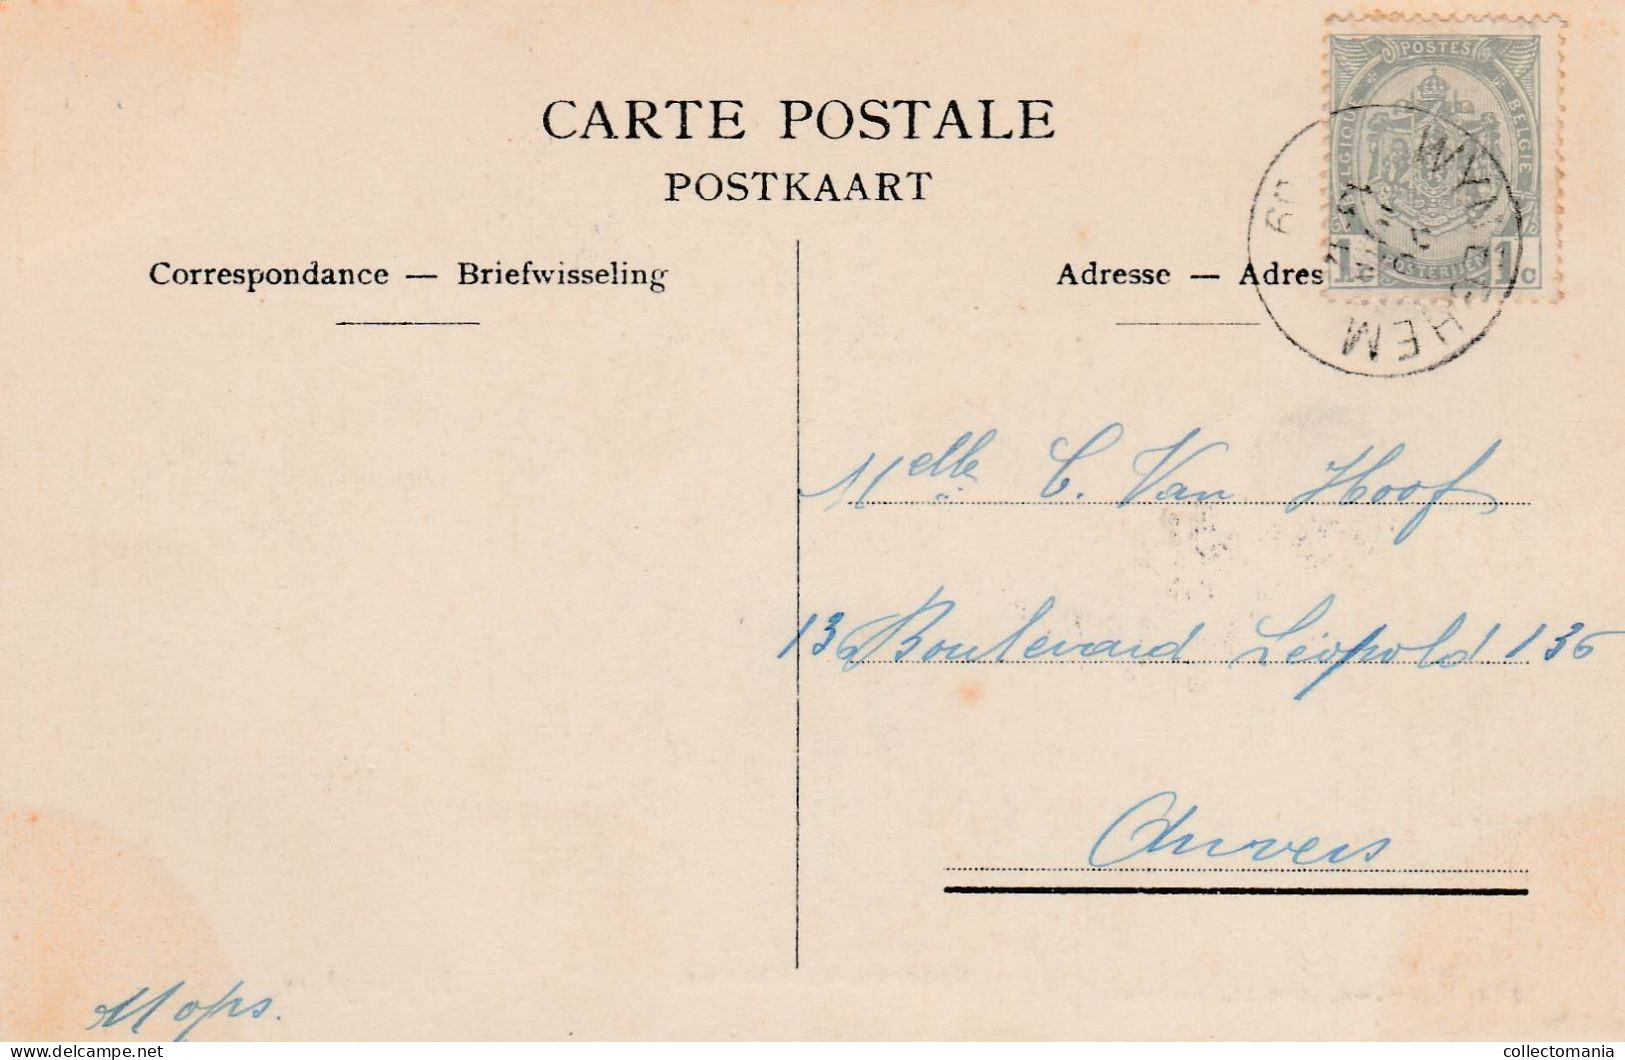 CARTE POSTALE
POSTKAART
Correspondance — Briefwisseling
Adresse — Adres
POSTES
BELGIE
1 1c
HEM
09
Melle C. Van Hoof
136 Boulevard Léopold 136
Anvers
Mops.
www.delcampe.net
collectomania